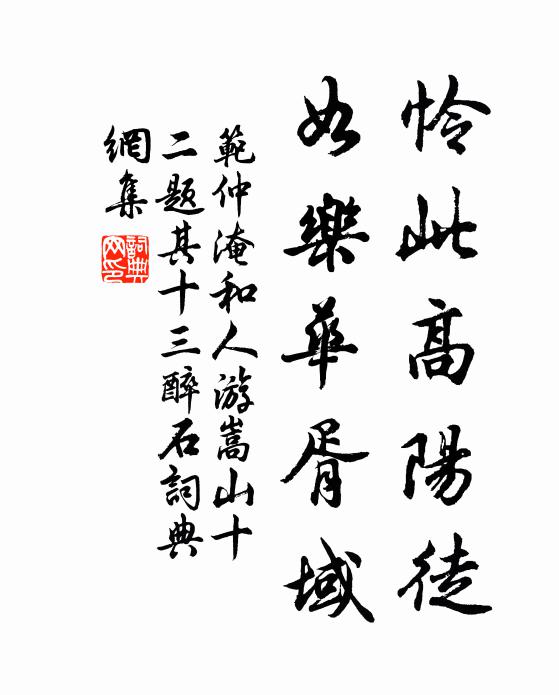 怜此高陽徒
如樂華胥域
範仲淹和人游嵩山十
二题其十三醉石詞典
網集
詞典网印